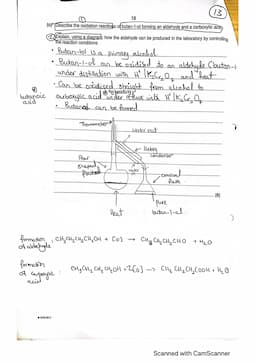 13
18
(b)* Describe the oxidation reactions of butan-1-ol forming an aldehyde and a carboxylic acid.
Explain, using a diagram, how the aldehyde can be produced in the laboratory by controlling
the reaction conditions.
· Butan-1-ol is a primary alcohol
· Butan-1-ol can be oxidised to an aldehyde (butan-1-
under distillation with H⁺/K₂Cr₂O₇ and heat
· Can be oxidised straight from alcohol to
carboxylic acid under reflux with H⁺/K₂Cr₂O₇
butanoic
acid
· Butanal can be formed
Thermometer
water out
liebig
condenser
Pear
shaped
water in
conical
flask
Heat
pure
butan-1-al
[6]
formation
of aldehyde
: CH₃CH₂CH₂CH₂OH + [O] → CH₃CH₂CH₂CHO + H₂O
formation
of carboxylic
acid
: CH₃CH₂CH₂CH₂OH + 2[O] → CH₃CH₂CH₂COOH + H₂O
Scanned with CamScanner